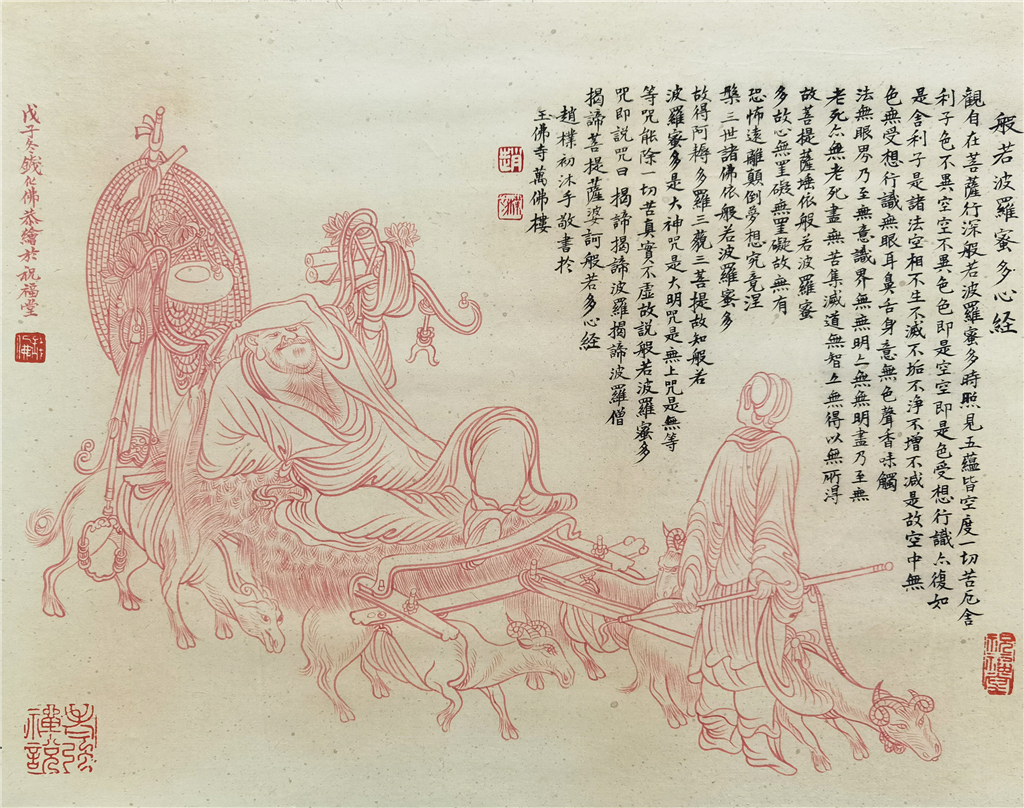 般若波羅蜜多心経
觀自在菩薩行深般若波羅蜜多時照見五蘊皆空度一切苦厄舍
利子色不異空空不異色色即是空空即是色受想行識亦復如
是舍利子是諸法空相不生不滅不垢不浄不增不减是故空中無
色無受想行識無眼耳鼻舌身意無色聲香味觸
法無眼界乃至無意識界無無明亦無無明盡乃至無
老死亦無老死盡無苦集滅道無智亦無得以無所得
故菩提薩埵依般若波羅蜜
多故心無罣礙無罣礙故無有
恐怖遠離顛倒夢想究竟涅
槃三世諸佛依般若波羅蜜多
故得阿耨多羅三藐三菩提故知般若
波羅蜜多是大神咒是大明咒是無上咒是無等
等咒能除一切苦真實不虛故説般若波羅蜜多
咒即説咒曰揭諦揭諦波羅揭諦波羅僧
揭諦菩提薩婆訶般若多心経
趙樸初沐手敬書於
玉佛寺萬佛樓
戊子冬錢化佛恭繪於祝福堂